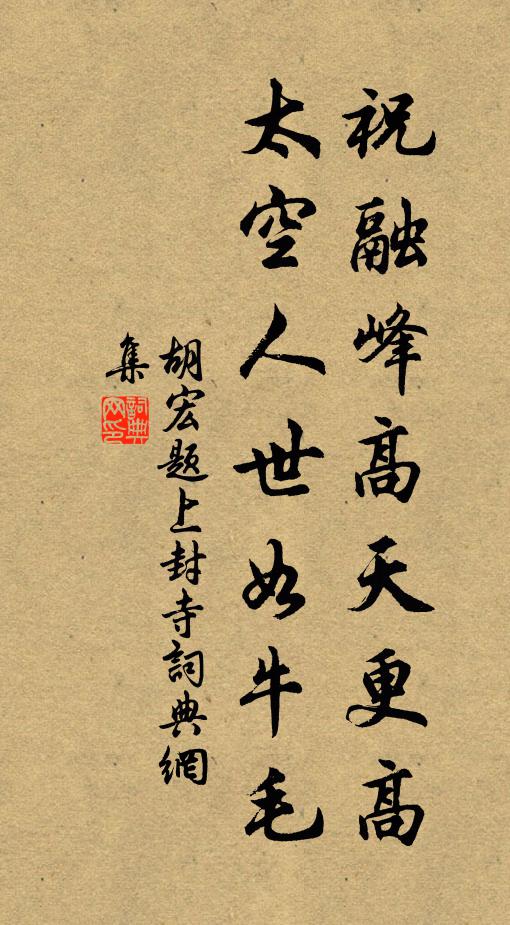 祝融峰高天更高
太空人世如牛毛
胡宏题上封寺詞典網
集
詞典
网印